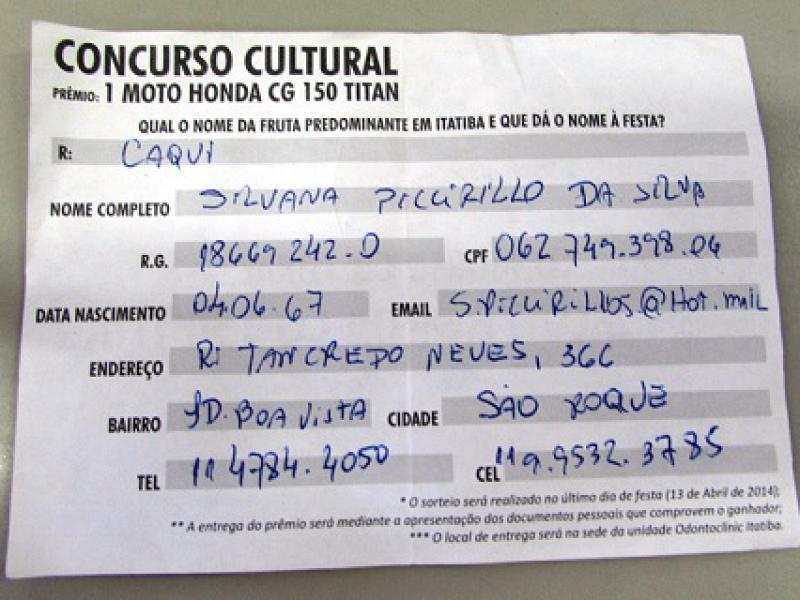 CONCURSO CULTURAL
PRÊMIO: 1 MOTO HONDA CG 150 TITAN
QUAL O NOME DA FRUTA PREDOMINANTE EM ITATIBA E QUE DÁ O NOME À FESTA?
R: CAQUI
NOME COMPLETO SILVANA PICCIRILLO DA SILVA
R.G. 18669 242.0 CPF 062 749.398.06
DATA NASCIMENTO 04.06.67 EMAIL S.PICCIRILLOS@HOT.MAIL
ENDEREÇO R: TANCREDO NEVES, 366
BAIRRO JD. BOA VISTA CIDADE SÃO ROQUE
TEL 11 4784.4050 CEL 11 9.9532.3785
* O sorteio será realizado no último dia de festa (13 de Abril de 2014);
** A entrega do prêmio será mediante a apresentação dos documentos pessoais que comprovem o ganhador;
*** O local de entrega será na sede da unidade Odontoclinic Itatiba.